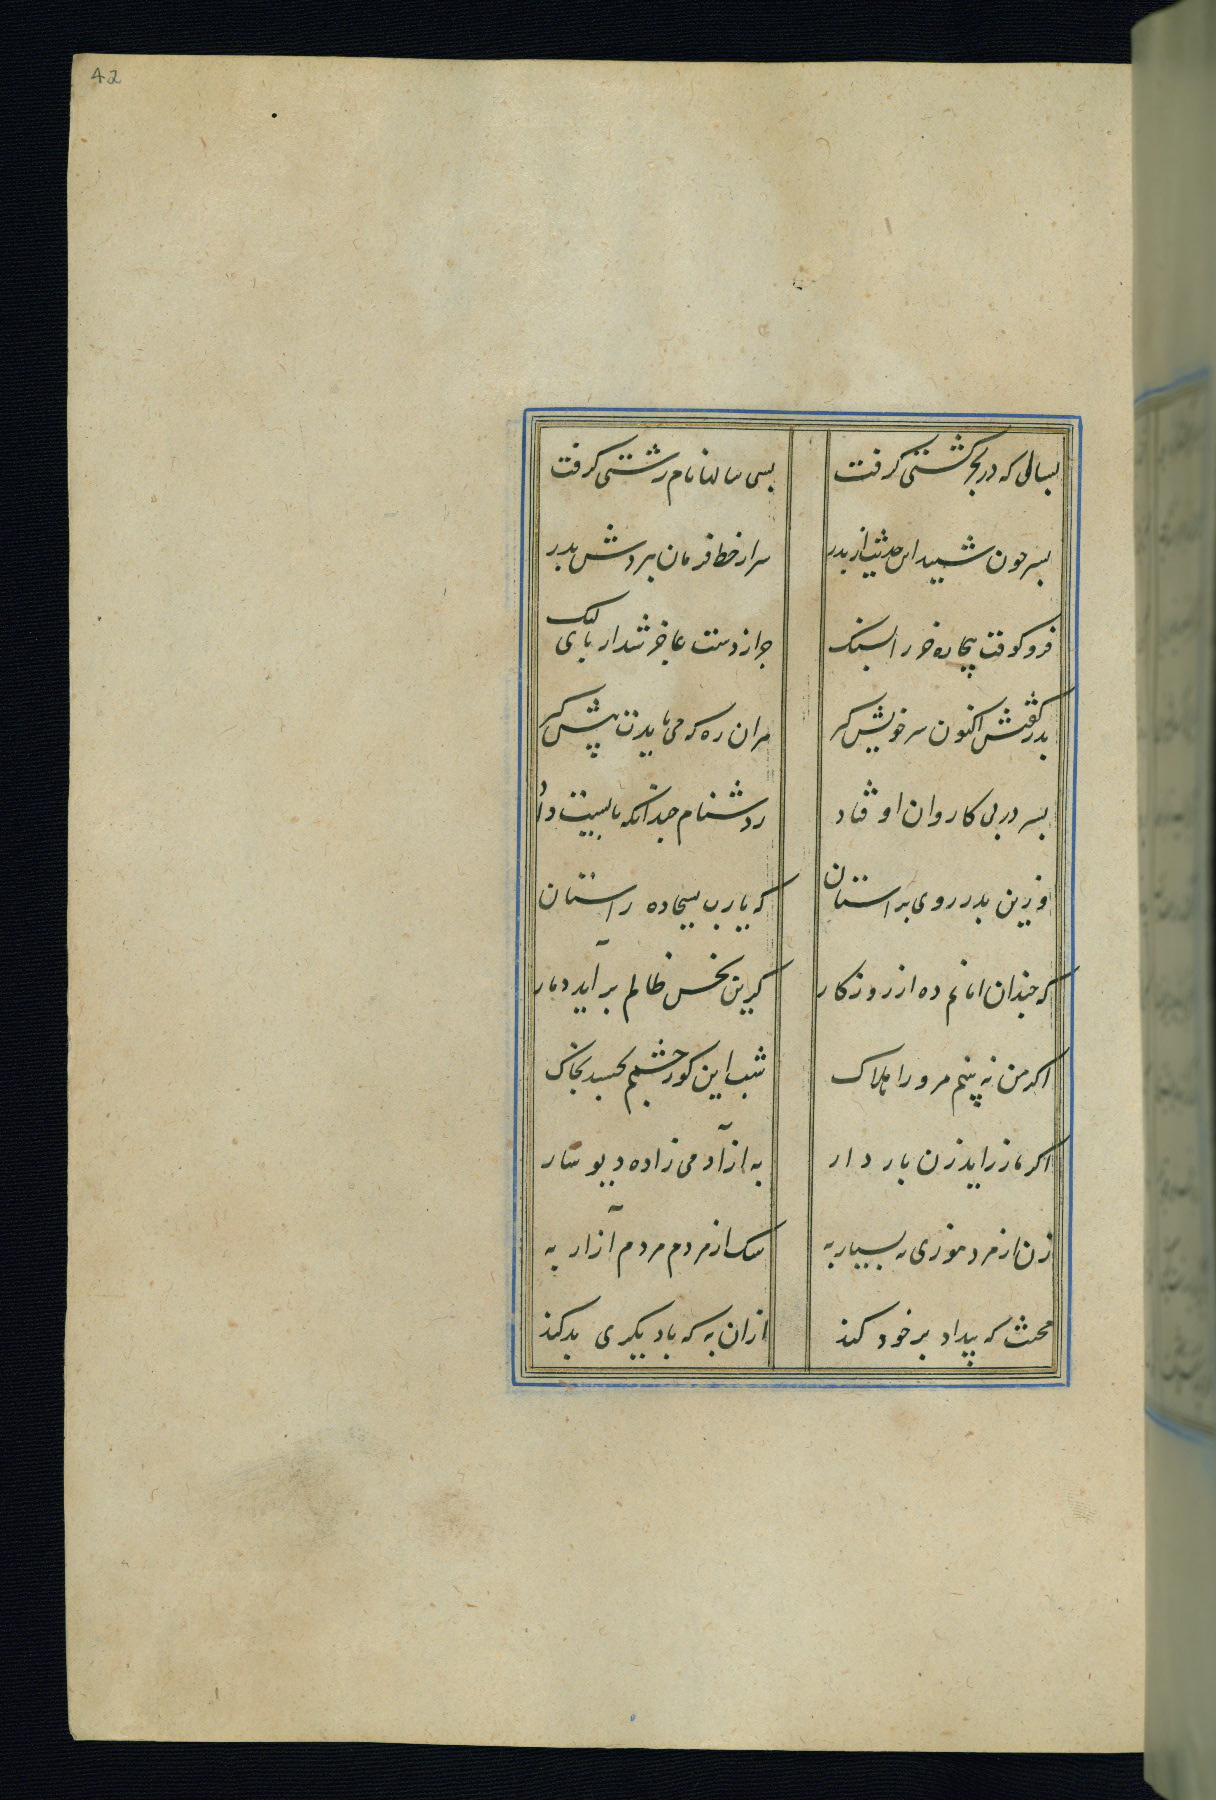 42
بسالی که در بحر کشتی کرفت بسی سالها نام زشتی کرفت
بسر جون شنید این حدیث از بدر سر از خط فرمان بردش بدر
فرو کوفت بیجاره خر را بسنک خر از دست عاجز شد از بای لنک
بدر کفتش اکنون سر خویش کیر هر آن ره که می بایدت پیش کیر
بسر در بی کاروان اوفتاد ز دشنام جندانکه بایست داد
وزین بدر روی بر استان که یارب بسجاده راستان
که جندان امانم ده از روزکار کزین نحس ظالم بر آید دمار
اکر من نه بینم مرو را هلاک شب این کور جشمم نخسبد بخاک
اکر مار زاید زن باردار به از آدمی زاده دیوسار
زن از مرد موذی به بسیار به سک از مردم مردم آزار به
مخنث که بیداد بر خود کند ازان به که با دیکری بد کند